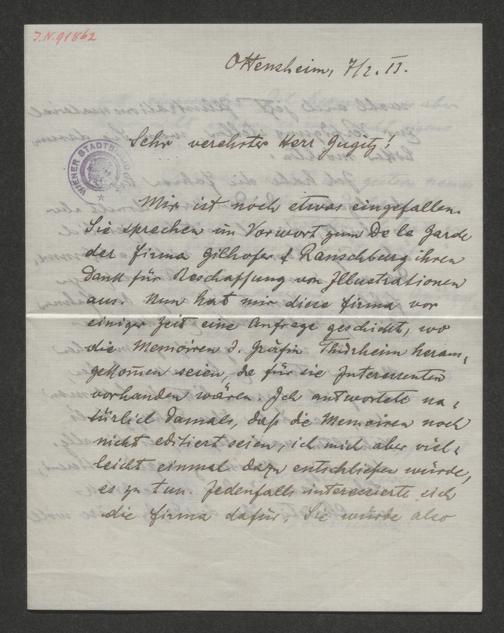 J.N. 91862
Ottensheim, 7/2. 11.
WIENER STADTBIBL
Sehr verehrter Herr Gugitz!
Mir ist noch etwas eingefallen.
Sie sprechen im Vorwort zum De la Garde
der Firma Gilhofer & Ranschburg ihren
Dank für Beschaffung von Illustrationen
aus. Nun hat mir diese Firma vor
einiger Zeit eine Anfrage geschickt, wo
die Memoiren d. Gräfin Thürheim heraus,
gekom̄en seien, da für sie Interessenten
vorhanden wären. Ich antwortete na,
türlich damals, daß die Memoiren noch
nicht editiert seien, ich mich aber viel,
leicht einmal dazu entschließen würde,
es zu tun. Jedenfalls interessierte sich
die Firma dafür. Sie würde also